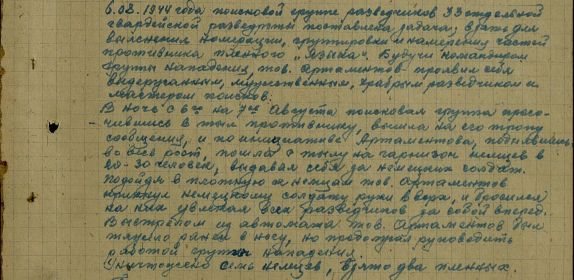 6.08.1944 года поисковой группе разведчиков 33 отдельной
гвардейской разведроты поставлена задача; взять для
выяснения нумерации, группировки и намерений частей
противника пленного "языка". Будучи командиром
группы нападения тов. Артаментов проявил себя
выдержанным, мужественным, храбрым разведчиком и
мастером поисков.
В ночь с 6го на 7ое Августа поисковая группа просо-
чившись в тыл противнику, вышла на его тропу
сообщения, и по инициативе Артаментова, поднявшись
во весь рост, пошла с тылу на гарнизон немцев в
20-30 человек, выдавая себя за немецких солдат.
Подойдя в плотную к немцам тов. Артаментов
крикнул немецкому солдату руки вверх, и бросился
на них увлекая всех разведчиков за собой вперед.
Выстрелом из автомата тов. Артаментов был
тяжело ранен в ногу, но продолжал руководить
работой группы нападения.
Уничтожено семь немцев, взято два пленных.